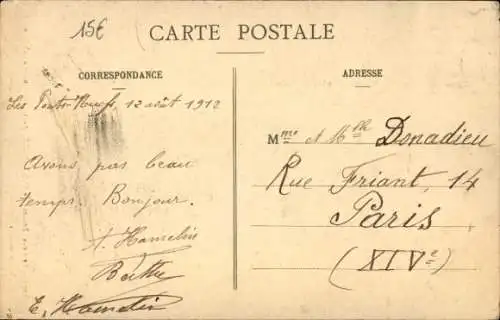 15€
CARTE POSTALE
CORRESPONDANCE
Les Ponts-Neufs, 12 août 1912
Avons pas beau
temps. Bonjour.
A. Hamelin
Berthe
E. Hamelin
ADRESSE
Mme et Mlle Donadieu
Rue Friant, 14
Paris
(XIVe)